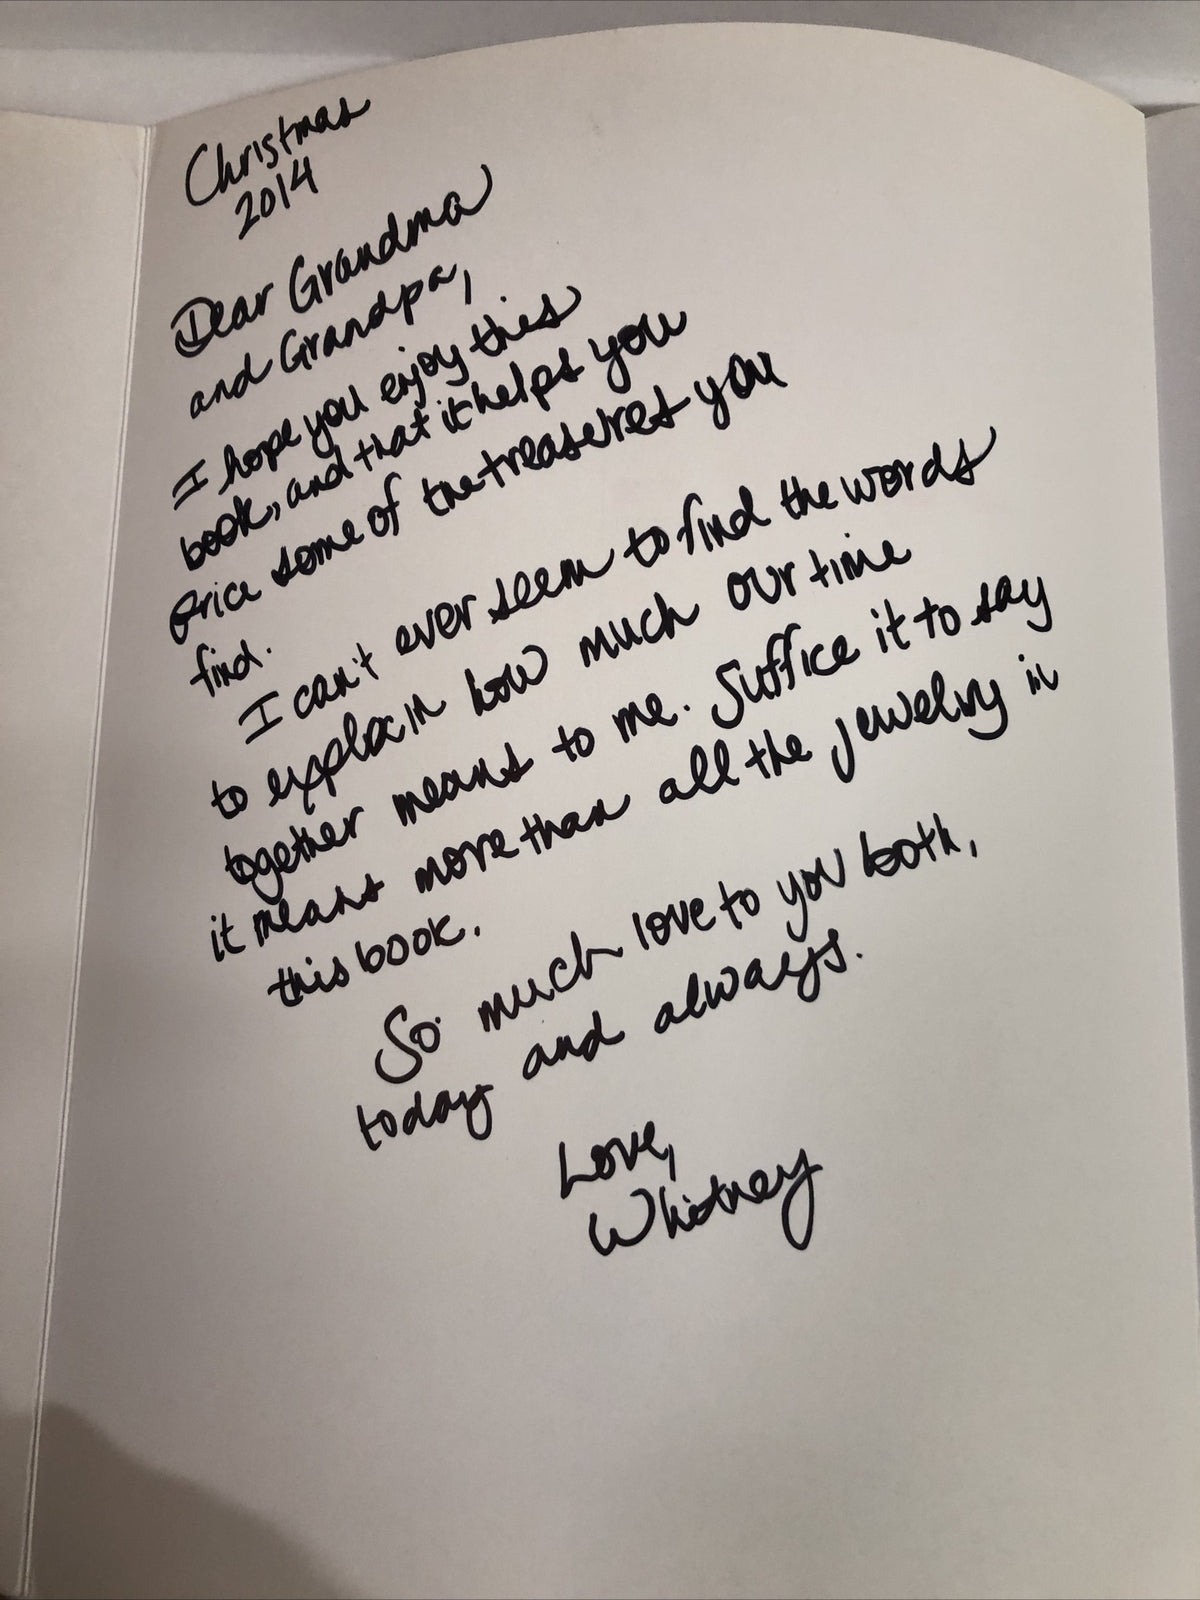 Christmas
2014
Dear Grandma
and Grandpa,
I hope you enjoy this
book, and that it helps you
price some of the treasures you
find.
I can't ever seem to find the words
to explain how much our time
together means to me. Suffice it to say
it means more than all the jewelry in
this book.
So much love to you both,
today and always.
Love,
Whitney